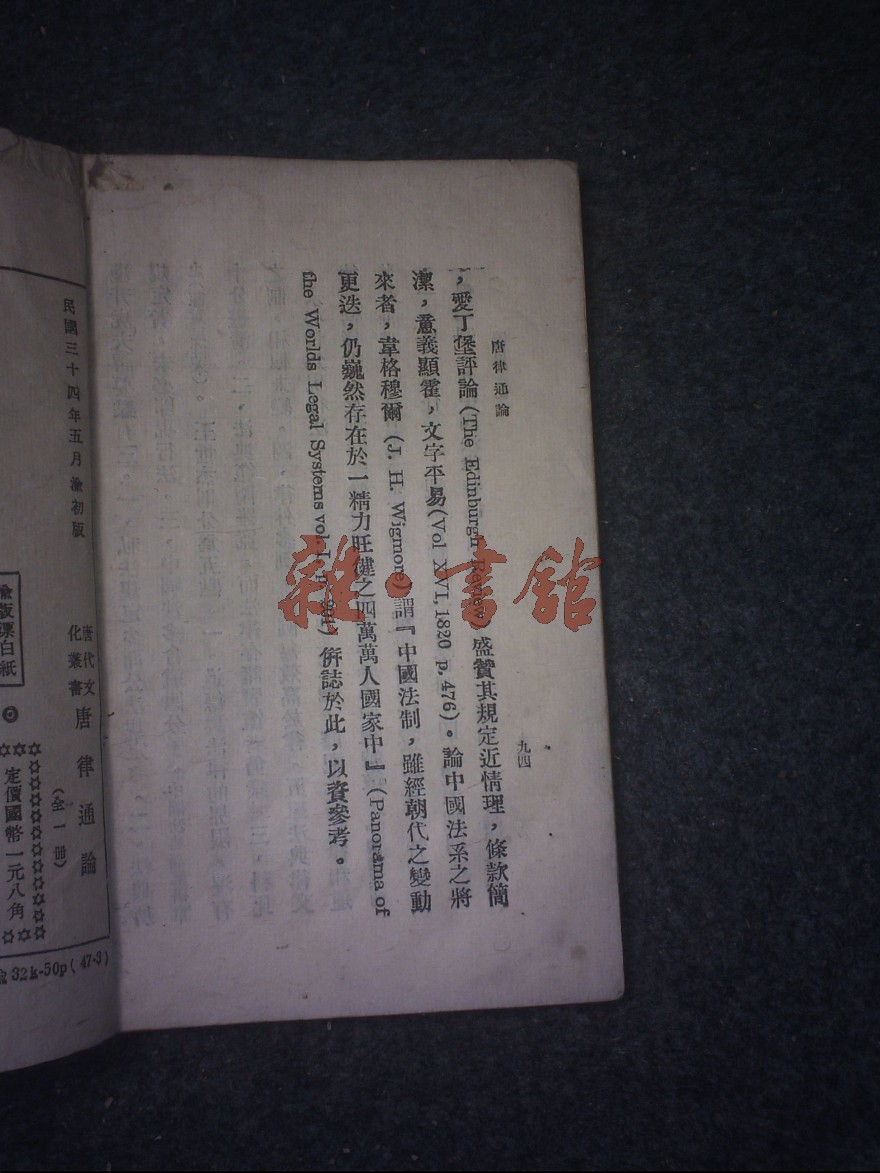 唐律通論
九四
，愛丁堡評論(The Edinburgh Review)盛贊其規定近情理，條款簡
潔，意義顯霍，文字平易(Vol XVI, 1820 p. 476)。論中國法系之將
來者，韋格穆爾 (J. H. Wigmore) 謂『中國法制，雖經朝代之變動
更迭，仍巍然存在於一精力旺健之四萬萬人國家中』(Panorama of
the Worlds Legal Systems vol. I, p. 201) 併誌於此，以資參考。
雜·書館
民國三十四年五月渝初版
渝版漂白紙
唐代文
化叢書
唐律通論
(全一冊)
定價國幣一元八角
32k-50p(47-3)